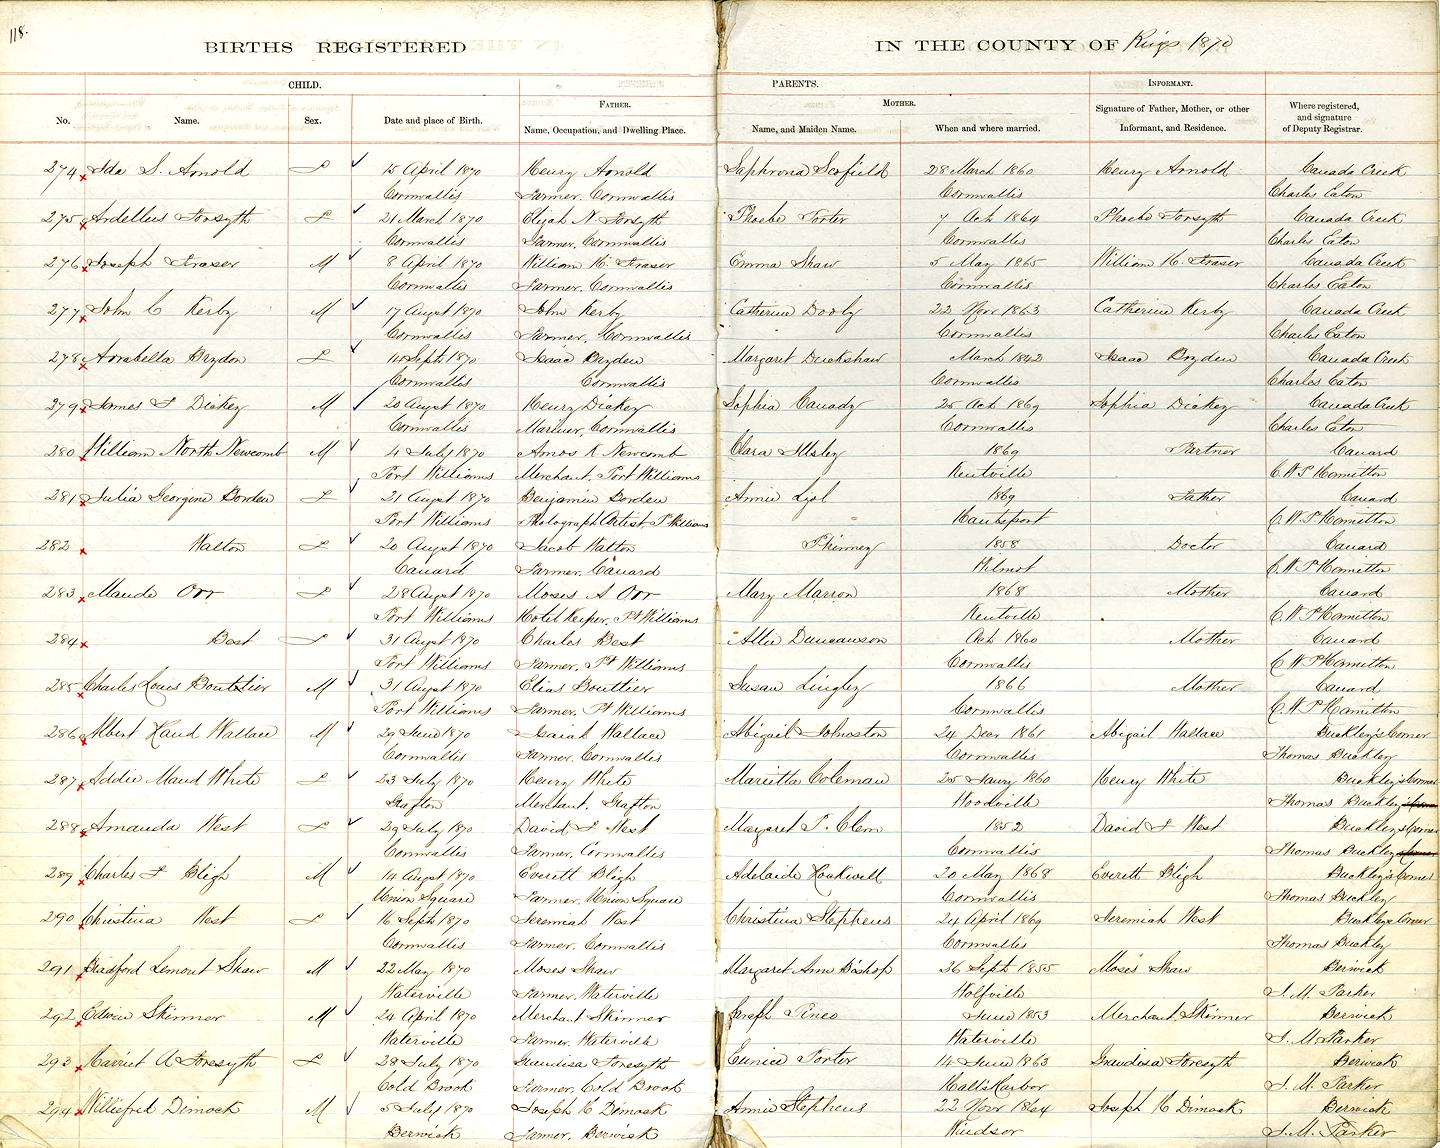 118.
BIRTHS REGISTERED IN THE COUNTY OF Kings 1870
CHILD. PARENTS. INFORMANT.
FATHER. MOTHER.
No. Name. Sex. Date and place of Birth. Name, Occupation, and Dwelling Place. Name, and Maiden Name. When and where married. Signature of Father, Mother, or other Informant, and Residence. Where registered, and signature of Deputy Registrar.
274 Ida S. Arnold F 15 April 1870 Henry Arnold Saphrona Scofield 28 March 1860 Henry Arnold Canada Creek
Cornwallis Farmer, Cornwallis Cornwallis Charles Eaton
275 Ardellus Forsyth F 21 March 1870 Elijah N Forsyth Phoebe Porter 7 Oct 1864 Phoebe Forsyth Canada Creek
Cornwallis Farmer, Cornwallis Cornwallis Charles Eaton
276 Joseph Fraser M 8 April 1870 William H. Fraser Emma Shaw 5 May 1865 William H. Fraser Canada Creek
Cornwallis Farmer, Cornwallis Cornwallis Charles Eaton
277 John C Kerby M 17 August 1870 John Kerby Catherine Dooly 22 Novr 1863 Catherine Kerby Canada Creek
Cornwallis Farmer, Cornwallis Cornwallis Charles Eaton
278 Anrabella Bryden F Septr 1870 Isaac Bryden Margaret Duckshaw March 1842 Isaac Bryden Canada Creek
Cornwallis Cornwallis Cornwallis Charles Eaton
279 James F Dickey M 20 August 1870 Henry Dickey Sophia Canady 25 Oct 1869 Sophia Dickey Canada Creek
Cornwallis Mariner, Cornwallis Cornwallis Charles Eaton
280 William North Newcomb M 4 July 1870 Amos K Newcomb Clara Illsley 1869 Partner Canard
Port Williams Merchant, Port Williams Kentville C. W. P. Hamilton
281 Julia Georgina Borden F 21 August 1870 Benjamin Borden Annie 1869 Father Canard
Port Williams Photograph Artist P. Williams Hantsport C. W. P Hamilton
282 Walton F 20 August 1870 Jacob Walton Phinney 1858 Doctor Canard
Canard Farmer, Canard Wilmot C. W. P Hamilton
283 Maude Orr F 28 August 1870 Moses A Orr Mary Marron 1868 Mother Canard
Port Williams Hotel Keeper, Pt Williams Kentville C. W. P Hamilton
284 Best F 31 August 1870 Charles Best Allie Duncanson Oct 1860 Mother Canard
Port Williams Farmer, Pt Williams Cornwallis C. W. P Hamilton
285 Charles Louis Boutilier M 31 August 1870 Elias Bouttier Susan Lingley 1866 Mother Canard
Port Williams Farmer, Pt Williams Cornwallis C. W. P Hamilton
286 Albert Hand Wallace M 29 June 1870 Isaiah Wallace Abigail Johnston 24 Decr 1861 Abigail Wallace Buckley's Corner
Cornwallis Farmer, Cornwallis Cornwallis Thomas Buckley
287 Addie Maud White F 23 July 1870 Henry White Marietta Coleman 25 Janry 1860 Henry White Buckley's Corner
Grafton Merchant, Grafton Woodville Thomas Buckley
288 Amanda West F 29 July 1870 David F West Margaret P. Clem 1852 David F West Buckley's Corner
Cornwallis Farmer, Cornwallis Cornwallis Thomas Buckley
289 Charles F Bligh M 14 August 1870 Everett Bligh Adelaide Rockwell 20 May 1868 Everett Bligh Buckley's Corner
Union Square Farmer, Union Square Cornwallis Thomas Buckley
290 Christina West F 16 Septr 1870 Jeremiah West Christina Stephens 24 April 1869 Jeremiah West Buckleys Corner
Cornwallis Farmer, Cornwallis Cornwallis Thomas Buckley
291 Bradford Lemont Shaw M 22 May 1870 Moses Shaw Margaret Ann Bishop 26 Septr 1855 Moses Shaw Berwick
Waterville Farmer, Waterville Wolfville J. M. Parker
292 Edwin Skinner M 24 April 1870 Merchant Skinner Pineo June 1853 Merchant Skinner Berwick
Waterville Farmer, Waterville Waterville J. M. Parker
293 Harriet A Forsyth F 28 July 1870 Grandisa Forsyth Eunice Porter 14 June 1863 Grandisa Forsyth Berwick
Cold Brook Farmer, Cold Brook Halls Harbor J. M. Parker
294 Williefred Dimock M 5 July 1870 Joseph H Dimock Annie Stephens 22 Novr 1864 Joseph H Dimock Berwick
Berwick Farmer, Berwick Windsor J. M. Parker